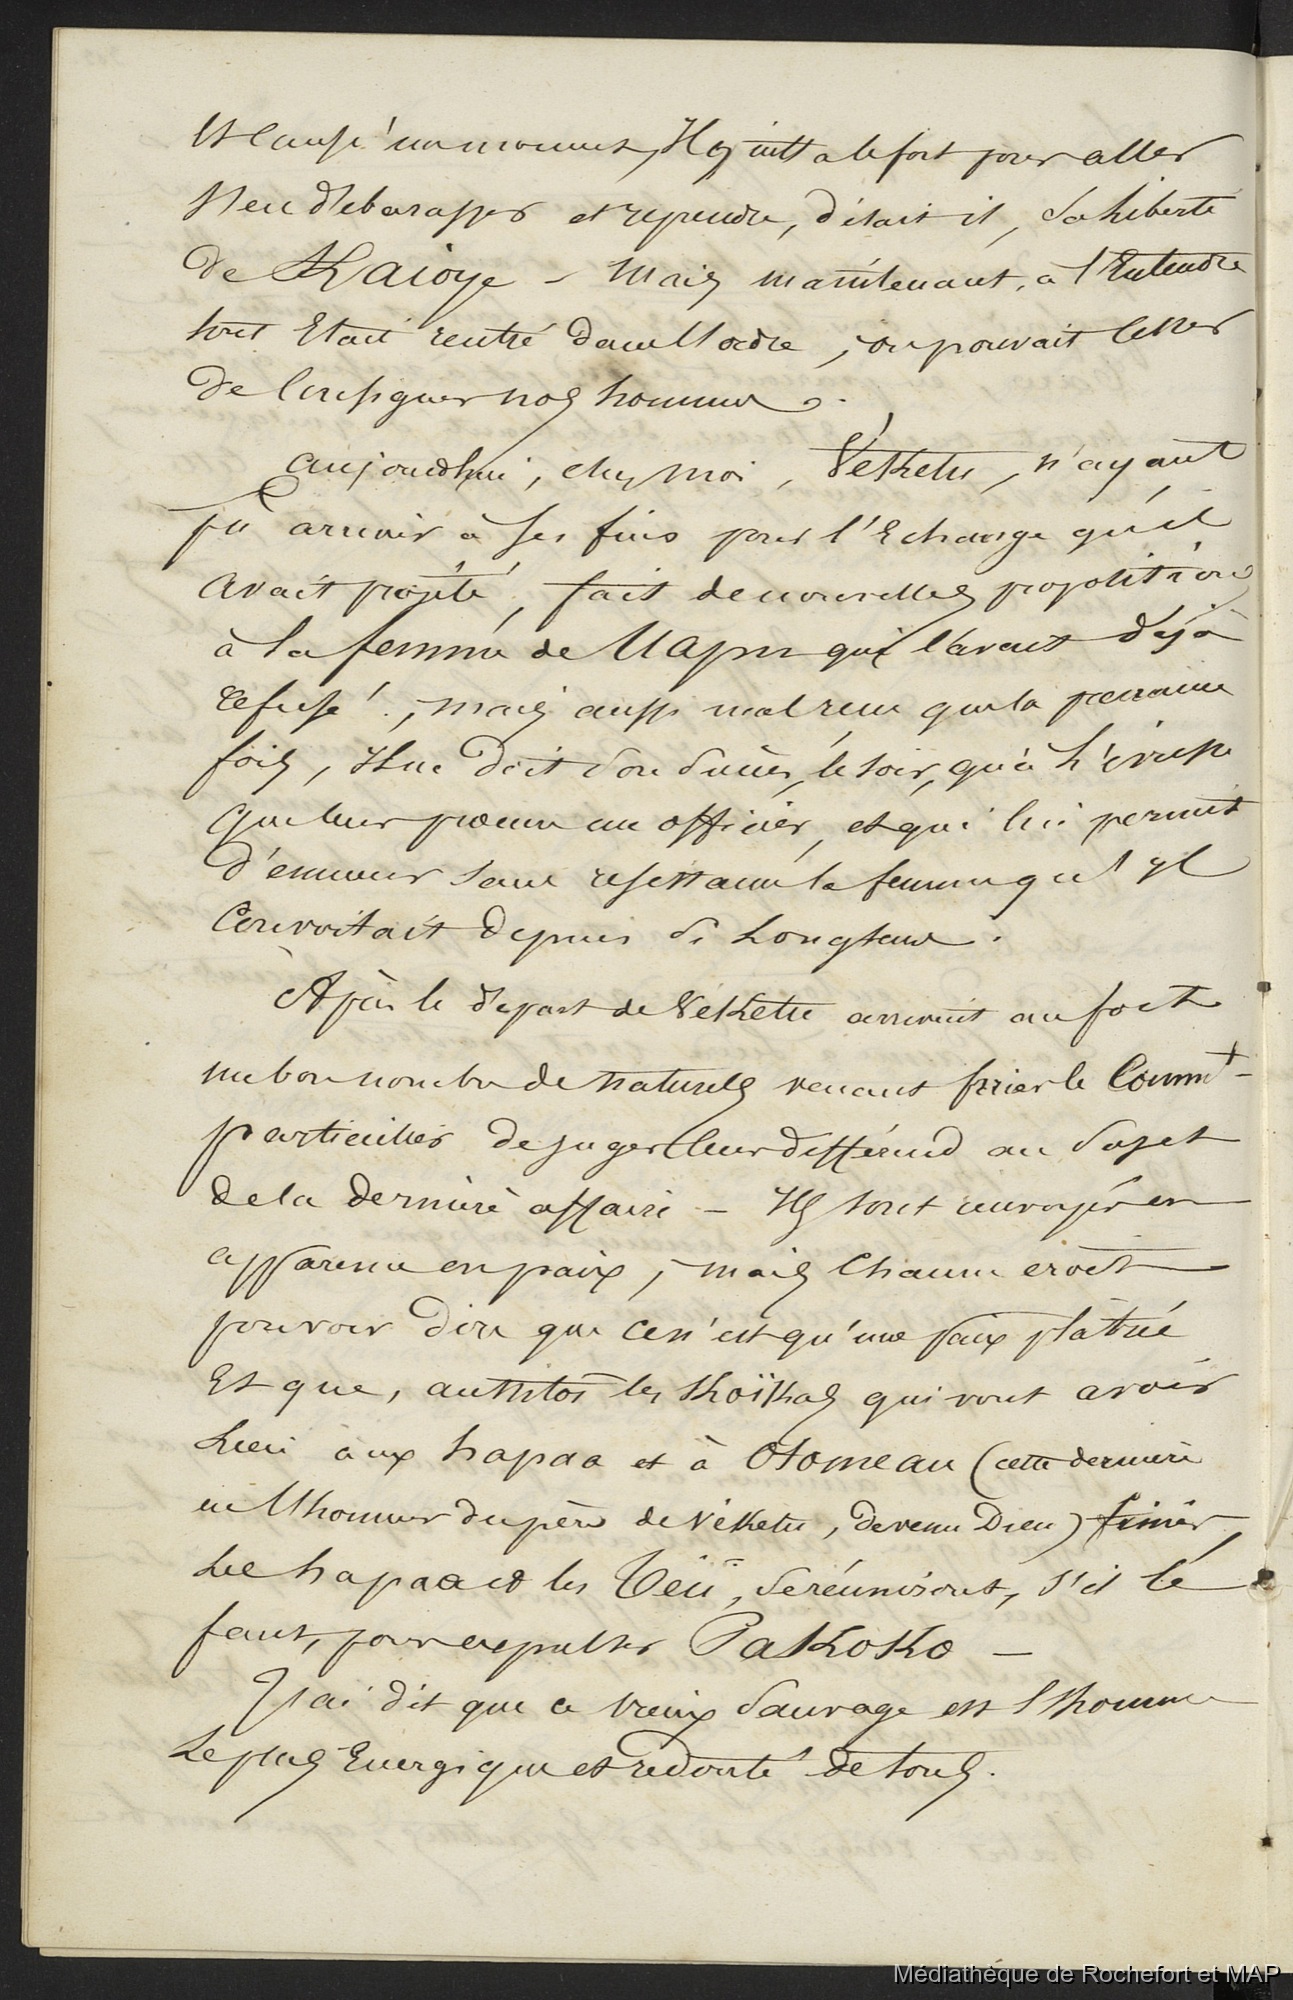 et causé un moment, Il quitta le fort pour aller
s'en débarasser et reprendre, disait il, sa liberté
de Haioye - Mais maintenant, à l'Entendre
tout Etait rentré dans l'ordre, on pouvait cesser
de Consigner nos hommes.
aujourdhui, chez moi, Vékétu, n'ayant
pu arriver à ses fins pour l'Echange qu'il
avait projeté, fait de nouvelles propositions
à la femme de Mapu qui l'avait déjà
refusé, mais aussi mal reçu que la première
fois, Il ne doit son succès, le soir, qu'à l'ivresse
que leur procura un officier, et qui lui permit
d'emmener sans résistance la femme qu'Il
Convoitait depuis si Longtems.
Après le départ de Vékétu arrivait au fort
un bon nombre de naturels venant prier le Commt
particulier de juger leur différend au Sujet
de la dernière affaire - Ils sont renvoyés en
apparence en paix, mais Chacun croit
pouvoir dire que ce n'est qu'une paix plâtrée
Et que, aussitôt les Koïkas qui vont avoir
Lieu aux hapaa et à Otomeau (cette dernière
en l'honneur du père de Vékétu, devenu Dieu) finies,
Les hapaa et les Teïi, se réuniront, s'il le
faut, pour expulser Pakoko -
J'ai dit que ce vieux Sauvage est l'homme
Le plus Energique et redouté de tous.
Médiathèque de Rochefort et MAP